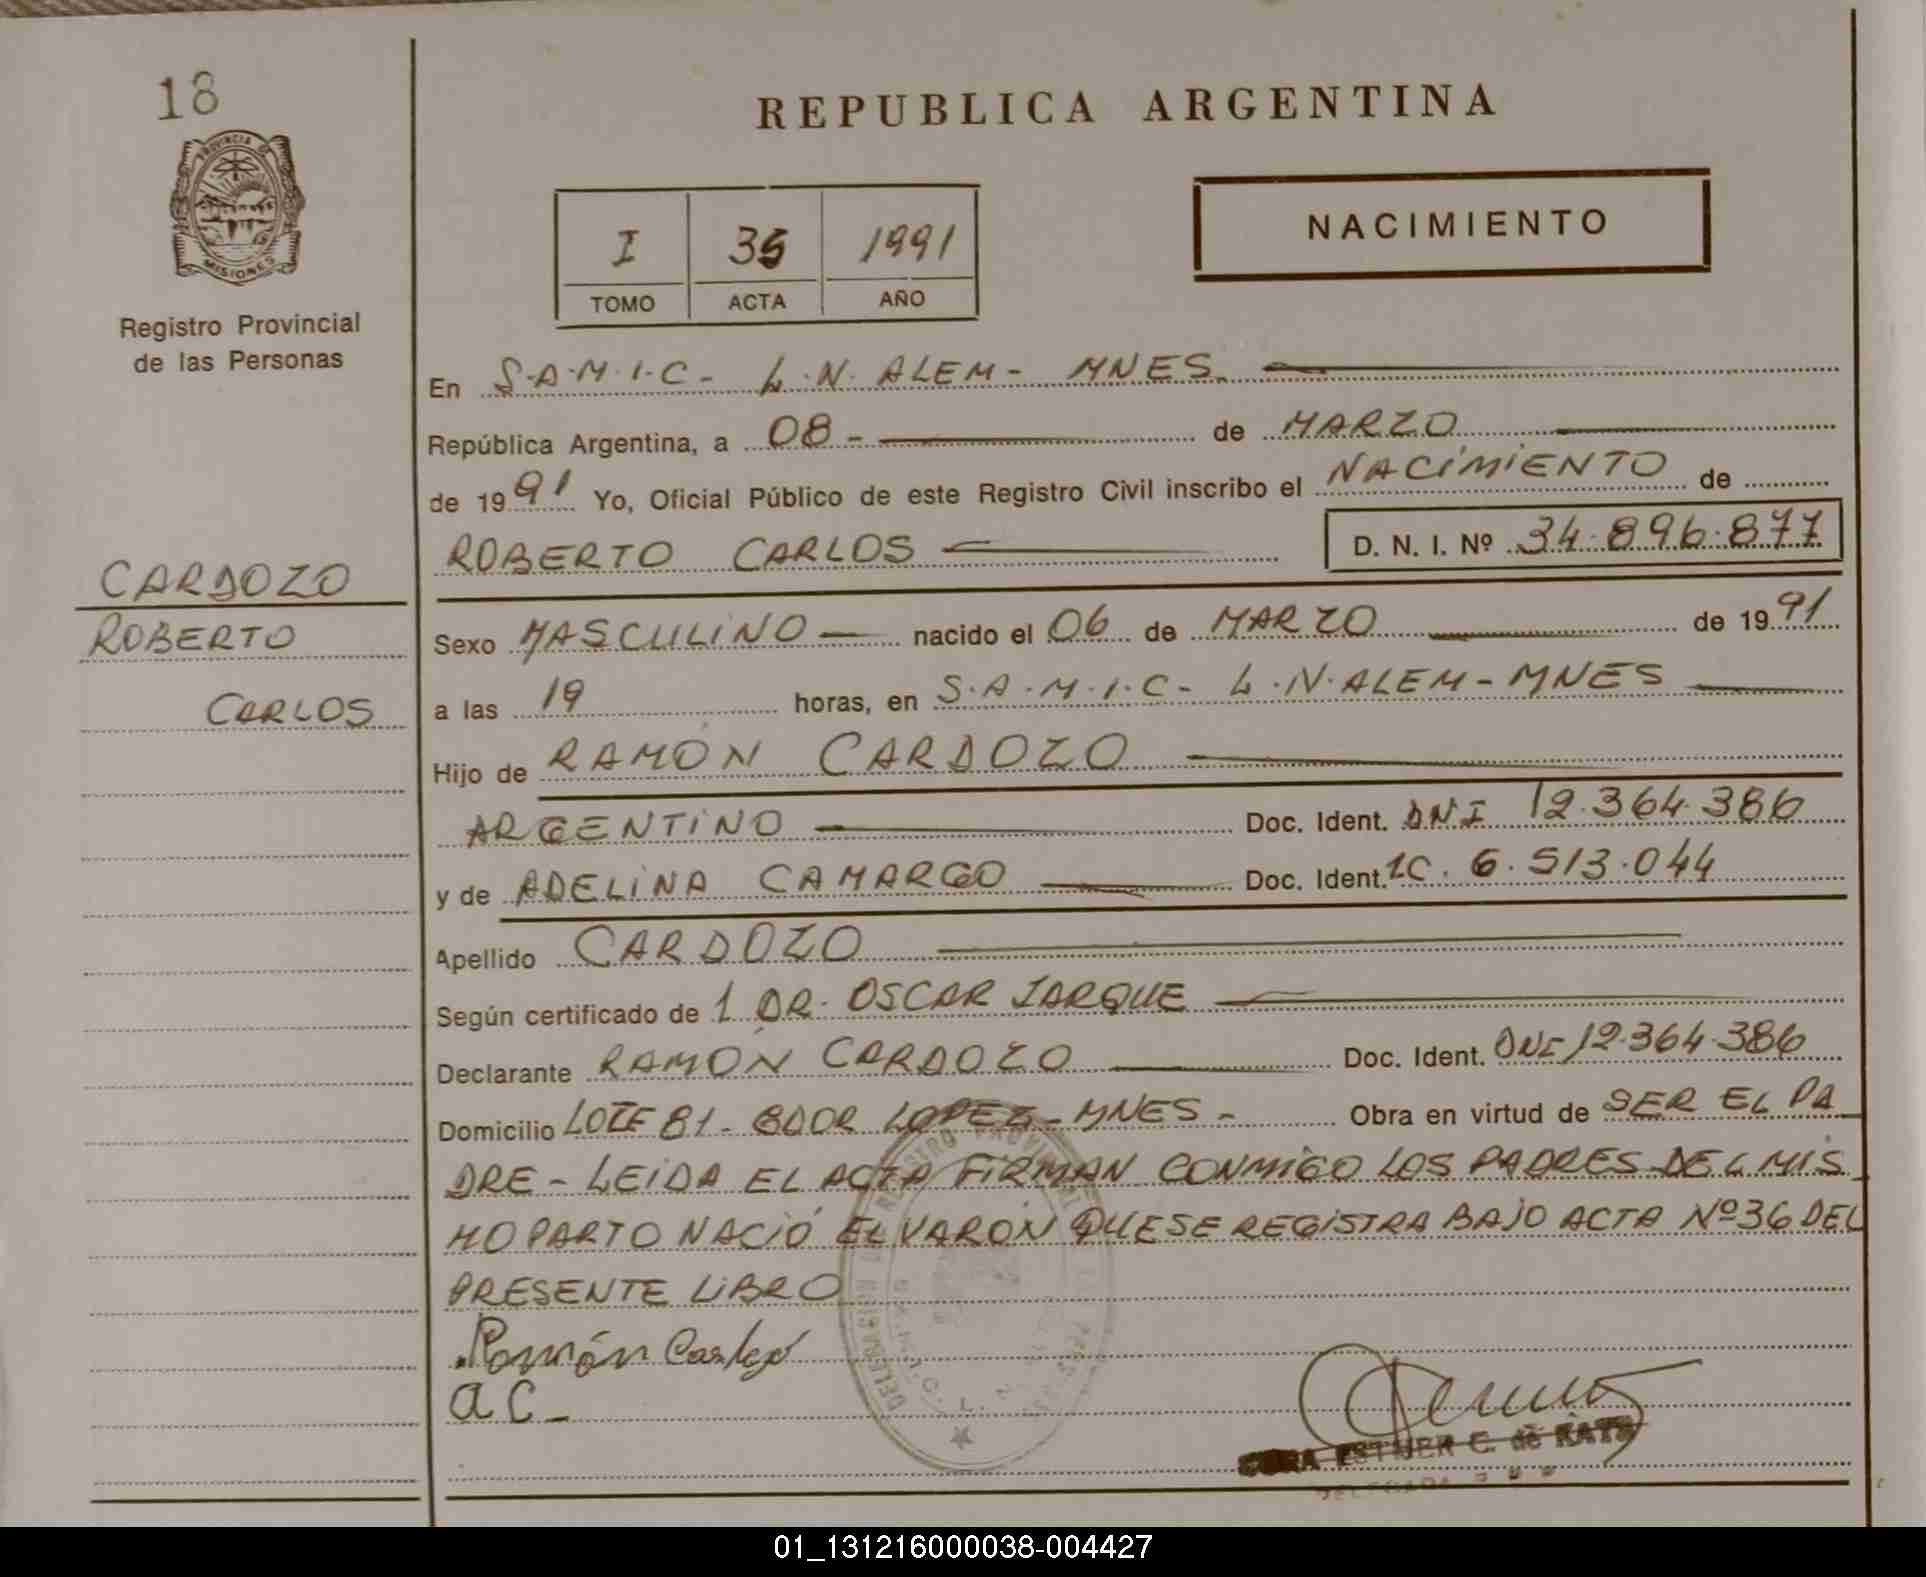 18
PROVINCIA DE
MISIONES
Registro Provincial
de las Personas
CARDOZO
ROBERTO
CARLOS
REPUBLICA ARGENTINA
I 35 1991
TOMO ACTA AÑO
NACIMIENTO
En S.A.M.I.C- L.N. ALEM- MNES.
República Argentina, a 08- de MARZO
de 1991 Yo, Oficial Público de este Registro Civil inscribo el NACIMIENTO de
ROBERTO CARLOS D. N. I. Nº 34.896.877
Sexo MASCULINO nacido el 06 de MARZO de 1991
a las 19 horas, en S.A.M.I.C- L.N.ALEM-MNES
Hijo de RAMÓN CARDOZO
ARGENTINO Doc. Ident. DNI 12.364.386
y de ADELINA CAMARGO Doc. Ident. 6.513.044
Apellido CARDOZO
Según certificado de 1 DR. OSCAR JARQUE
Declarante RAMÓN CARDOZO Doc. Ident. DNI 12.364.386
Domicilio LOTE 81- GDOR LOPEZ-MNES- Obra en virtud de SER EL PA
DRE-LEIDA EL ACTA FIRMAN CONMIGO LOS PADRES DEL MIS
MO PARTO NACIÓ EL VARON QUE SE REGISTRA BAJO ACTA Nº36 DEL
PRESENTE LIBRO
Ramón
a C-
ESTHER C. de KATZ
DELEGADA
01_131216000038-004427